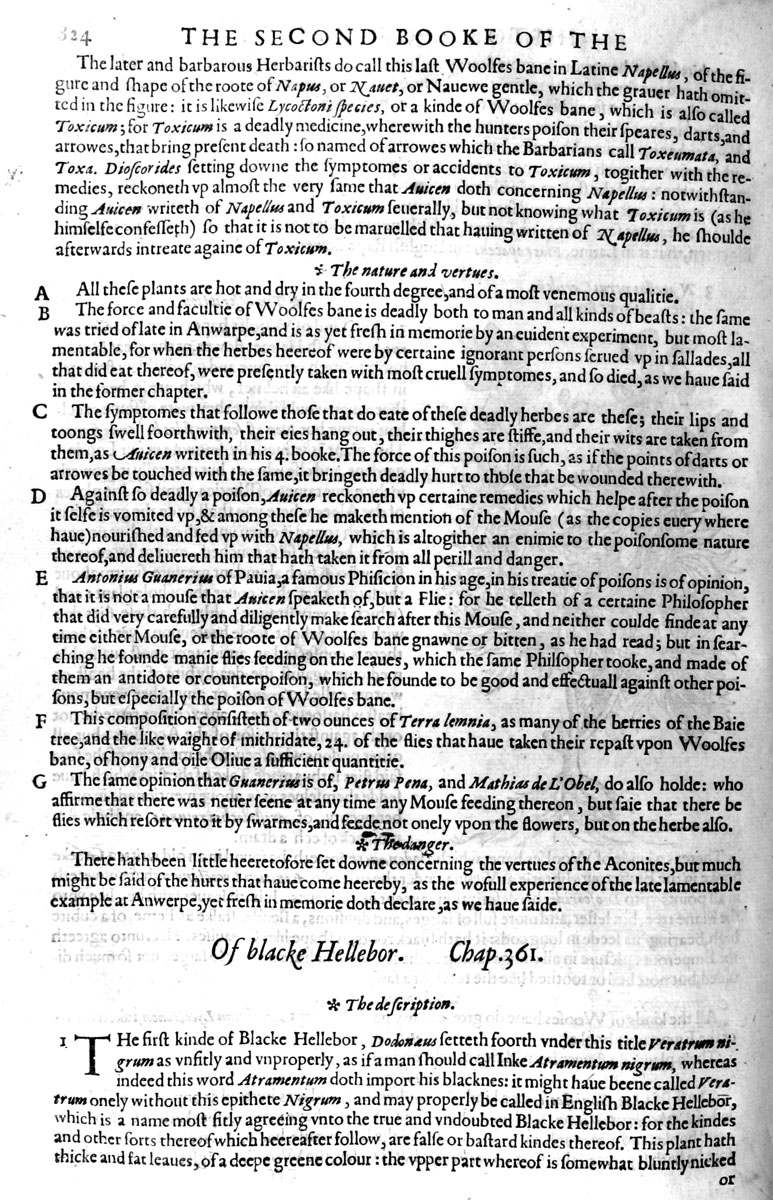 824 THE SECOND BOOKE OF THE
The later and barbarous Herbariſts do call this laſt Woolfes bane in Latine Napellus, of the fi-
gure and ſhape of the roote of Napus, or Nauet, or Nauewe gentle, which the grauer hath omit-
ted in the figure: it is likewiſe Lycoctoni ſpecies, or a kinde of Woolfes bane, which is alſo called
Toxicum; for Toxicum is a deadly medicine, wherewith the hunters poiſon their ſpeares, darts, and
arrowes, that bring preſent death: ſo named of arrowes which the Barbarians call Toxeumata, and
Toxa. Dioſcorides ſetting downe the ſymptomes or accidents to Toxicum, togither with the re-
medies, reckoneth vp almoſt the very ſame that Auicen doth concerning Napellus: notwithſtan-
ding Auicen writeth of Napellus and Toxicum ſeuerally, but not knowing what Toxicum is (as he
himſelfe confeſſeth) ſo that it is not to be maruelled that hauing written of Napellus, he ſhoulde
afterwards intreate againe of Toxicum.
* The nature and vertues.
A All theſe plants are hot and dry in the fourth degree, and of a moſt venemous qualitie.
B The force and facultie of Woolfes bane is deadly both to man and all kinds of beaſts: the ſame
was tried of late in Anwarpe, and is as yet freſh in memorie by an euident experiment, but moſt la-
mentable, for when the herbes heereof were by certaine ignorant perſons ſerued vp in ſallades, all
that did eat thereof, were preſently taken with moſt cruell ſymptomes, and ſo died, as we haue ſaid
in the former chapter.
C The ſymptomes that followe thoſe that do eate of theſe deadly herbes are theſe; their lips and
toongs ſwell foorthwith, their eies hang out, their thighes are ſtiffe, and their wits are taken from
them, as Auicen writeth in his 4. booke. The force of this poiſon is ſuch, as if the points of darts or
arrowes be touched with the ſame, it bringeth deadly hurt to thoſe that be wounded therewith.
D Againſt ſo deadly a poiſon, Auicen reckoneth vp certaine remedies which helpe after the poiſon
it ſelfe is vomited vp, & among theſe he maketh mention of the Mouſe (as the copies euery where
haue) nouriſhed and fed vp with Napellus, which is altogither an enimie to the poiſonſome nature
thereof, and deliuereth him that hath taken it from all perill and danger.
E Antonius Guanerius of Pauia, a famous Phiſicion in his age, in his treatie of poiſons is of opinion,
that it is not a mouſe that Auicen ſpeaketh of, but a Flie: for he telleth of a certaine Philoſopher
that did very carefully and diligently make ſearch after this Mouſe, and neither coulde finde at any
time either Mouſe, or the roote of Woolfes bane gnawne or bitten, as he had read; but in ſear-
ching he founde manie flies feeding on the leaues, which the ſame Philſopher tooke, and made of
them an antidote or counterpoiſon, which he founde to be good and effectuall againſt other poi-
ſons, but eſpecially the poiſon of Woolfes bane.
F This compoſition conſiſteth of two ounces of Terra lemnia, as many of the berries of the Baie
tree, and the like waight of mithridate, 24. of the flies that haue taken their repaſt vpon Woolfes
bane, of hony and oile Oliue a ſufficient quantitie.
G The ſame opinion that Guanerius is of, Petrus Pena, and Mathias de L'Obel, do alſo holde: who
affirme that there was neuer ſeene at any time any Mouſe feeding thereon, but ſaie that there be
flies which reſort vnto it by ſwarmes, and feede not onely vpon the flowers, but on the herbe alſo.
* The danger.
There hath been little heeretofore ſet downe concerning the vertues of the Aconites, but much
might be ſaid of the hurts that haue come heereby, as the wofull experience of the late lamentable
example at Anwerpe, yet freſh in memorie doth declare, as we haue ſaide.
Of blacke Hellebor. Chap. 361.
* The deſcription.
1 THe firſt kinde of Blacke Hellebor, Dodonæus ſetteth foorth vnder this title Veratrum ni-
grum as vnfitly and vnproperly, as if a man ſhould call Inke Atramentum nigrum, whereas
indeed this word Atramentum doth import his blacknes: it might haue beene called Vera-
trum onely without this epithete Nigrum, and may properly be called in Engliſh Blacke Hellebor,
which is a name moſt fitly agreeing vnto the true and vndoubted Blacke Hellebor: for the kindes
and other ſorts thereof which heereafter follow, are falſe or baſtard kindes thereof. This plant hath
thicke and fat leaues, of a deepe greene colour: the vpper part whereof is ſomewhat bluntly nicked
or